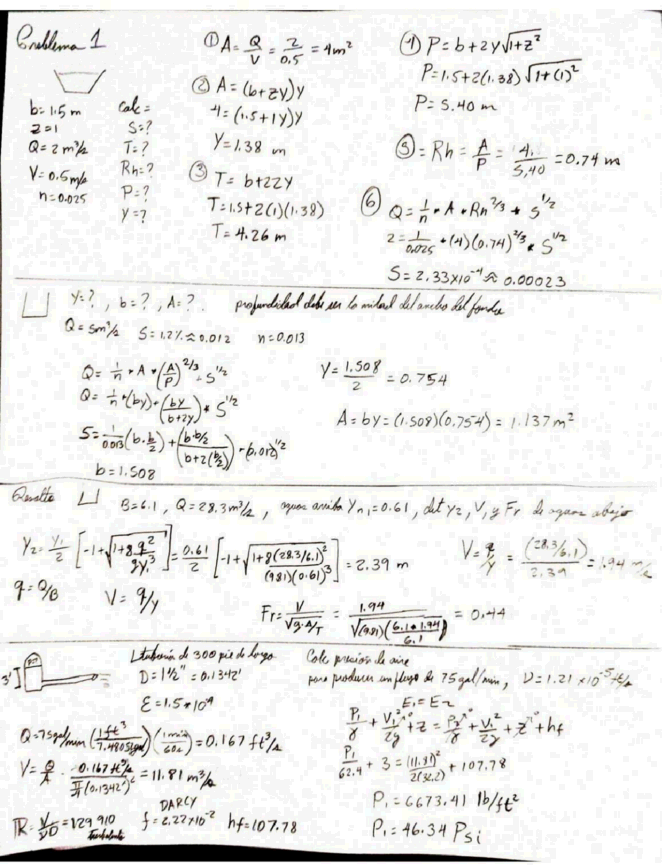 Problema 1
b= 1.5 m
z=1
Q= 2 m³/s
V= 0.5 m/s
n=0.025
calc =
S=?
T=?
Rh=?
P=?
Y=?
① A= Q/V = 2/0.5 = 4m²
② A = (b+zy)y
4=(1.5+1y)y
Y=1.38 m
③ T= b+2zy
T=1.5+2(1)(1.38)
T= 4.26 m
④ P= b+2y√1+z²
P=1.5+2(1.38)√1+(1)²
P= 5.40 m
⑤ = Rh = A/P = 4/5,40 = 0.74 m
⑥ Q= 1/n * A * Rh^2/3 * S^1/2
2= 1/0.025 *(4)(0.74)^2/3 * S^1/2
S= 2.33x10⁻⁴ ≈ 0.00023
Y=? , b=? , A=? . profundidad debe ser la mitad del ancho del fondo
Q= 5m³/s S= 1.2% ≈ 0.012 n=0.013
Q= 1/n * A * (A/P)^2/3 * S^1/2
Q= 1/n *(by)*(by/b+2y) * S^1/2
5= 1/0.013 (b.b/2) * (b.b/2 / b+2(b/2)) * 0.012^1/2
b=1.508
Y= 1.508/2 = 0.754
A= by= (1.508)(0.754) = 1.137 m²
Resalto B=6.1 , Q=28.3m³/s , aguas arriba Yn₁=0.61 , det y₂, V, y Fr de aguas abajo
Y₂= Y₁/2 [-1+√1+8q²/gy₁³] = 0.61/2 [-1+√1+8(28.3/6.1)²/(9.81)(0.61)³] = 2.39 m
V= q/y = (28.3/6.1)/2.39 = 1.94 m/s
q= Q/B V= q/y
Fr= V/√g.A/T = 1.94/√(9.81)(6.1*1.94/6.1) = 0.44
3'
L tubería de 300 pie de largo
D=1½" = 0.1342'
Ɛ=1.5*10⁻⁴
Q=75gal/min (1ft³/7.4805gal) (1min/60s) = 0.167 ft³/s
V= Q/A = 0.167 ft³/s / π/4(0.1342')² = 11.81 m³/s
IR= V/VD = 129 910
DARCY
f= 2.22x10⁻² hf=107.78
Calc presión de aire
para producir un flujo de 75 gal/min, ν=1.21 x10⁻⁵ ft/s
E₁= E₂
P₁/γ + V₁²/2g + z = P₂/γ + V₂²/2g + z + hf
P₁/62.4 + 3 = (11.81)²/2(32.2) + 107.78
P₁ = 6673.41 lb/ft²
P₁= 46.34 Psi